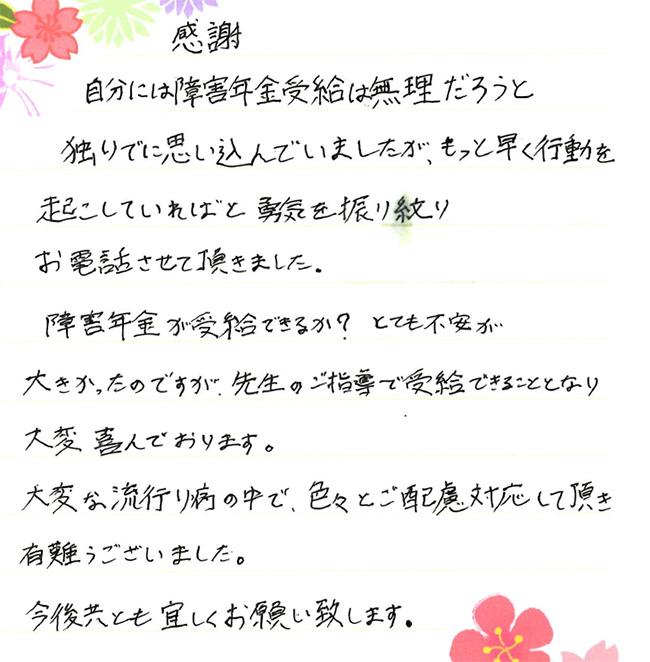 感謝
自分には障害年金受給は無理だろうと
独りでに思い込んでいましたが、もっと早く行動を
起こしていればと勇気を振り絞り
お電話させて頂きました。
障害年金が受給できるか? とても不安が
大きかったのですが、先生のご指導で受給できることとなり
大変喜んでおります。
大変な流行り病の中で、色々とご配慮対応して頂き
有難うございました。
今後共とも宜しくお願い致します。